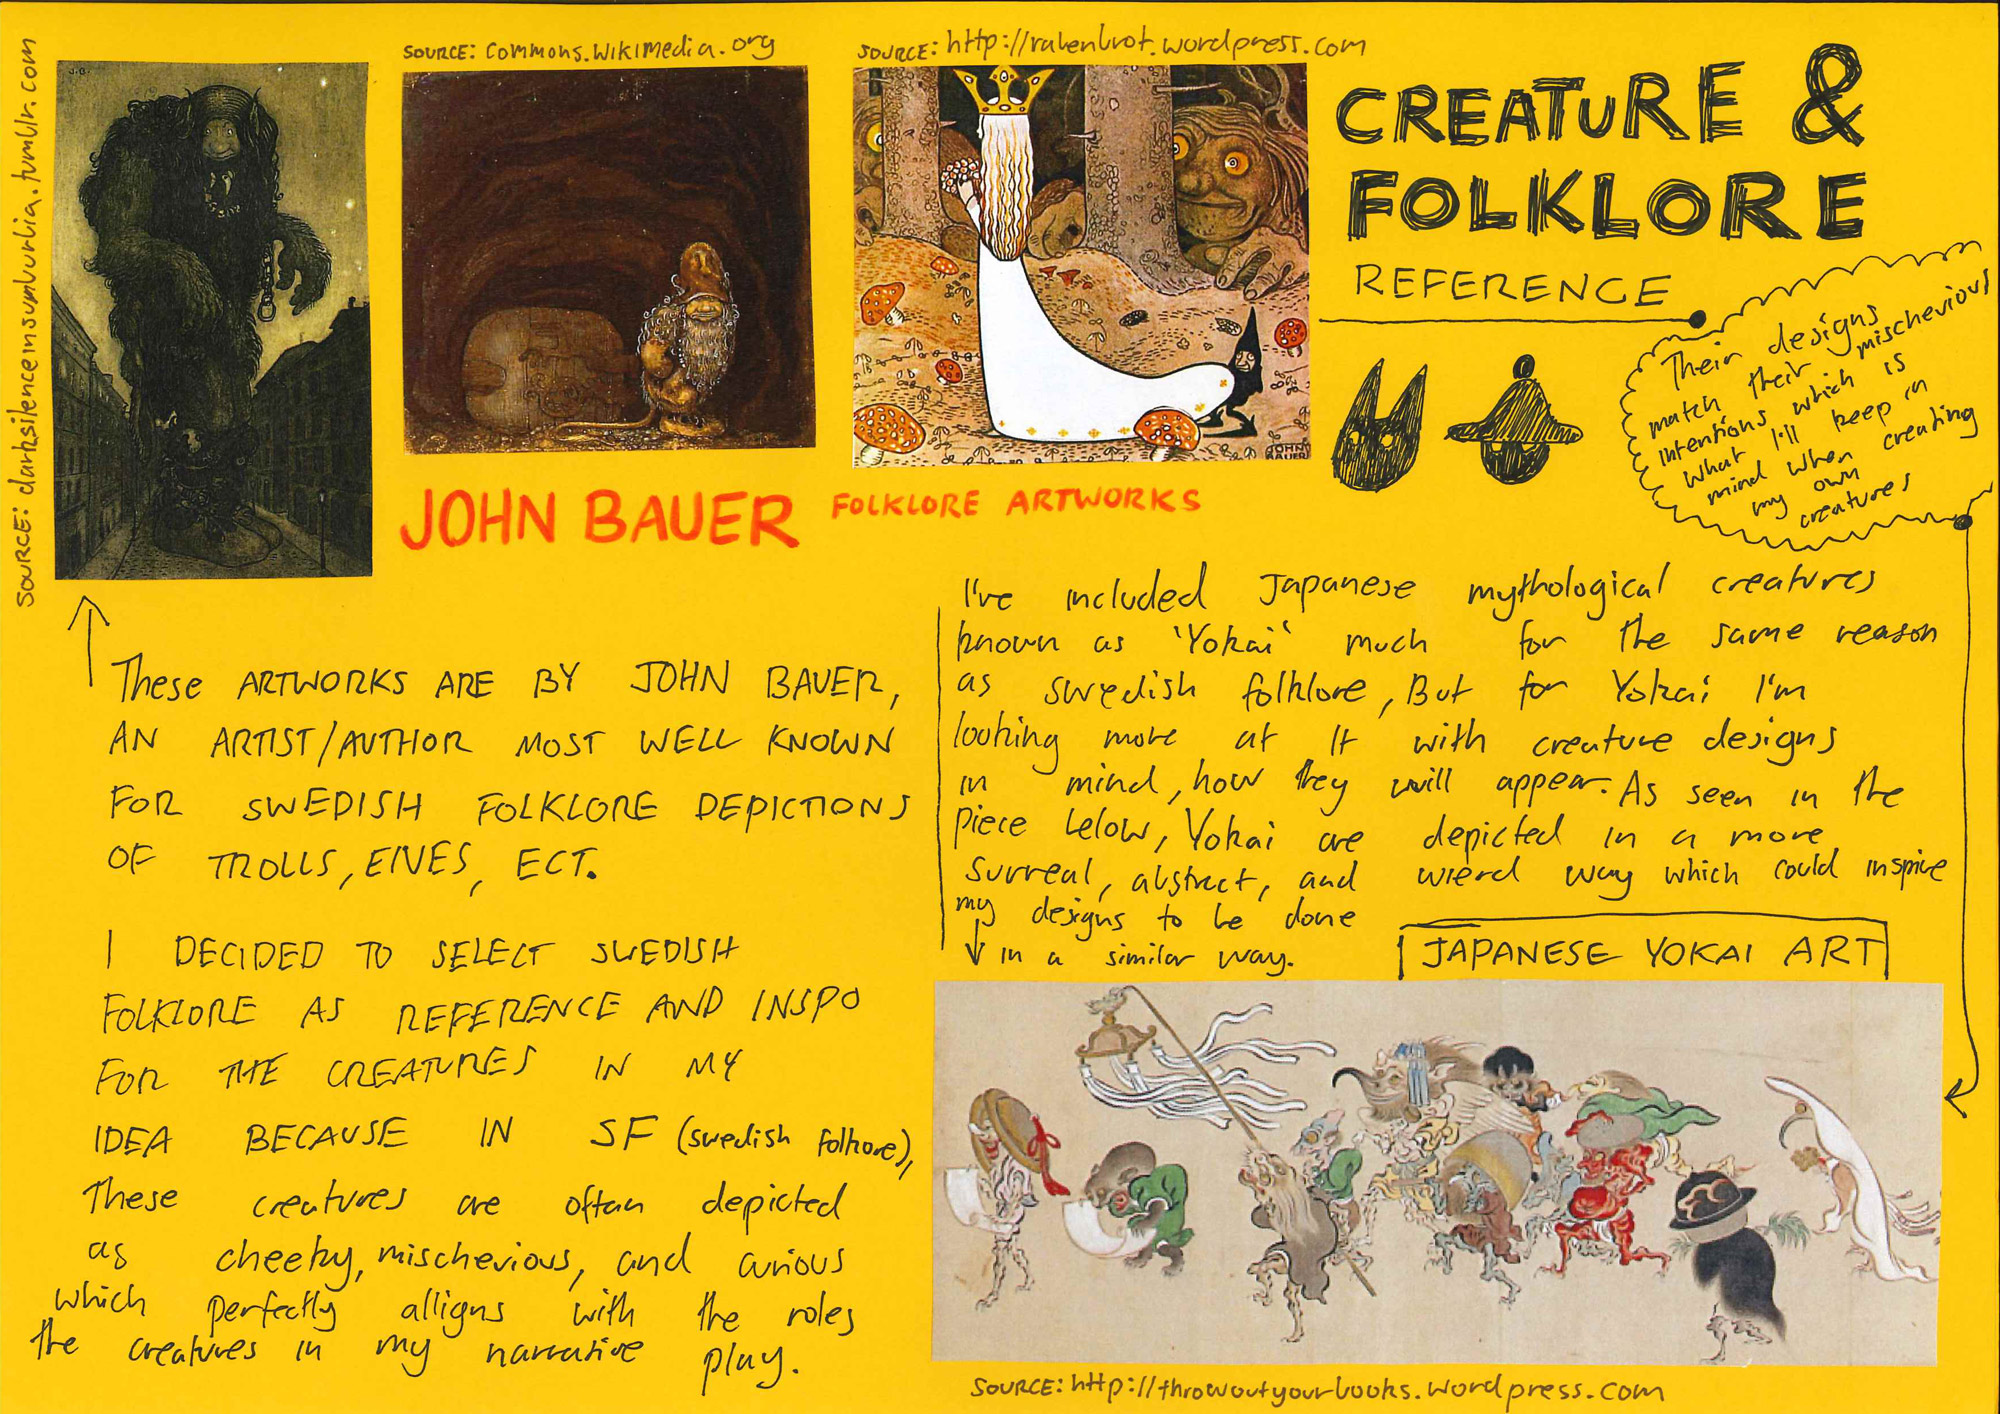 SOURCE: darksilenceinsuburbia.tumblr.com
J.B.
SOURCE: commons.wikimedia.org
SOURCE: http://rabenbrot.wordpress.com
JOHN
BAUER
CREATURE &
FOLKLORE
REFERENCE
Their designs
match their mischevious
intentions which is
what I'll keep in
mind when creating
my own
creatures
JOHN BAUER FOLKLORE ARTWORKS
These ARTWORKS ARE BY JOHN BAUER,
AN ARTIST/AUTHOR MOST WELL KNOWN
FOR SWEDISH FOLKLORE DEPICTIONS
OF TROLLS, ElVES, ECT.
I DECIDED TO SELECT SWEDISH
FOLKLORE AS REFERENCE AND INSPO
FOR THE CREATURES IN MY
IDEA BECAUSE IN SF (swedish folkore),
These creatures are often depicted
as cheeky, mischevious, and curious
which perfectly alligns with the roles
the creatures in my narrative play.
I've included Japanese mythological creatures
known as 'Yokai' much for the same reason
as swedish folklore, But for Yokai I'm
looking more at It with creature designs
in mind, how they will appear. As seen in the
piece below, Yokai are depicted in a more
surreal, abstract, and wierd way which could inspire
my designs to be done
in a similar way.
JAPANESE YOKAI ART
SOURCE: http://throwoutyourbooks.wordpress.com